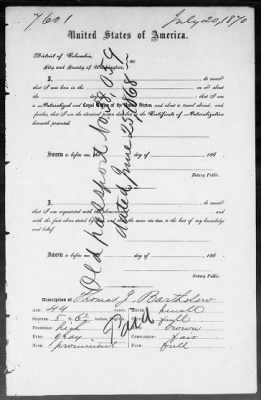 7601
July 20, 1870
United States of America.
District of Columbia,
City and County of Washington,
I, do swear
that I was born in the on or about
the that I am
a Naturalized and Loyal Citizen of the United States, and about to travel abroad; and
further, that I am the identical person described in the Certificate of Naturalization
herewith presented.
Sworn to before me, this day of 186
Notary Public.
I, do swear
that I am acquainted with the above
and with the facts above stated by and that the same are true, to the best of my knowledge
and belief.
Sworn to before me, this day of 186
Notary Public.
Old passport No. 38,059
dated June 25, 1868
Paid
Description of Thomas J. Bartholow
Age: 44
Mouth: small
Stature: 5 6½
Chin: full
Forehead: high
Hair: brown
Eyes: gray
Complexion: fair
Nose: prominent
Face: full